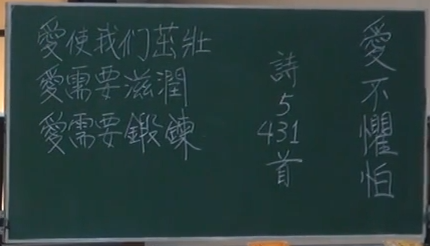 愛不懼怕
詩5431首
愛使我们茁壯
愛需要滋潤
愛需要鍛鍊